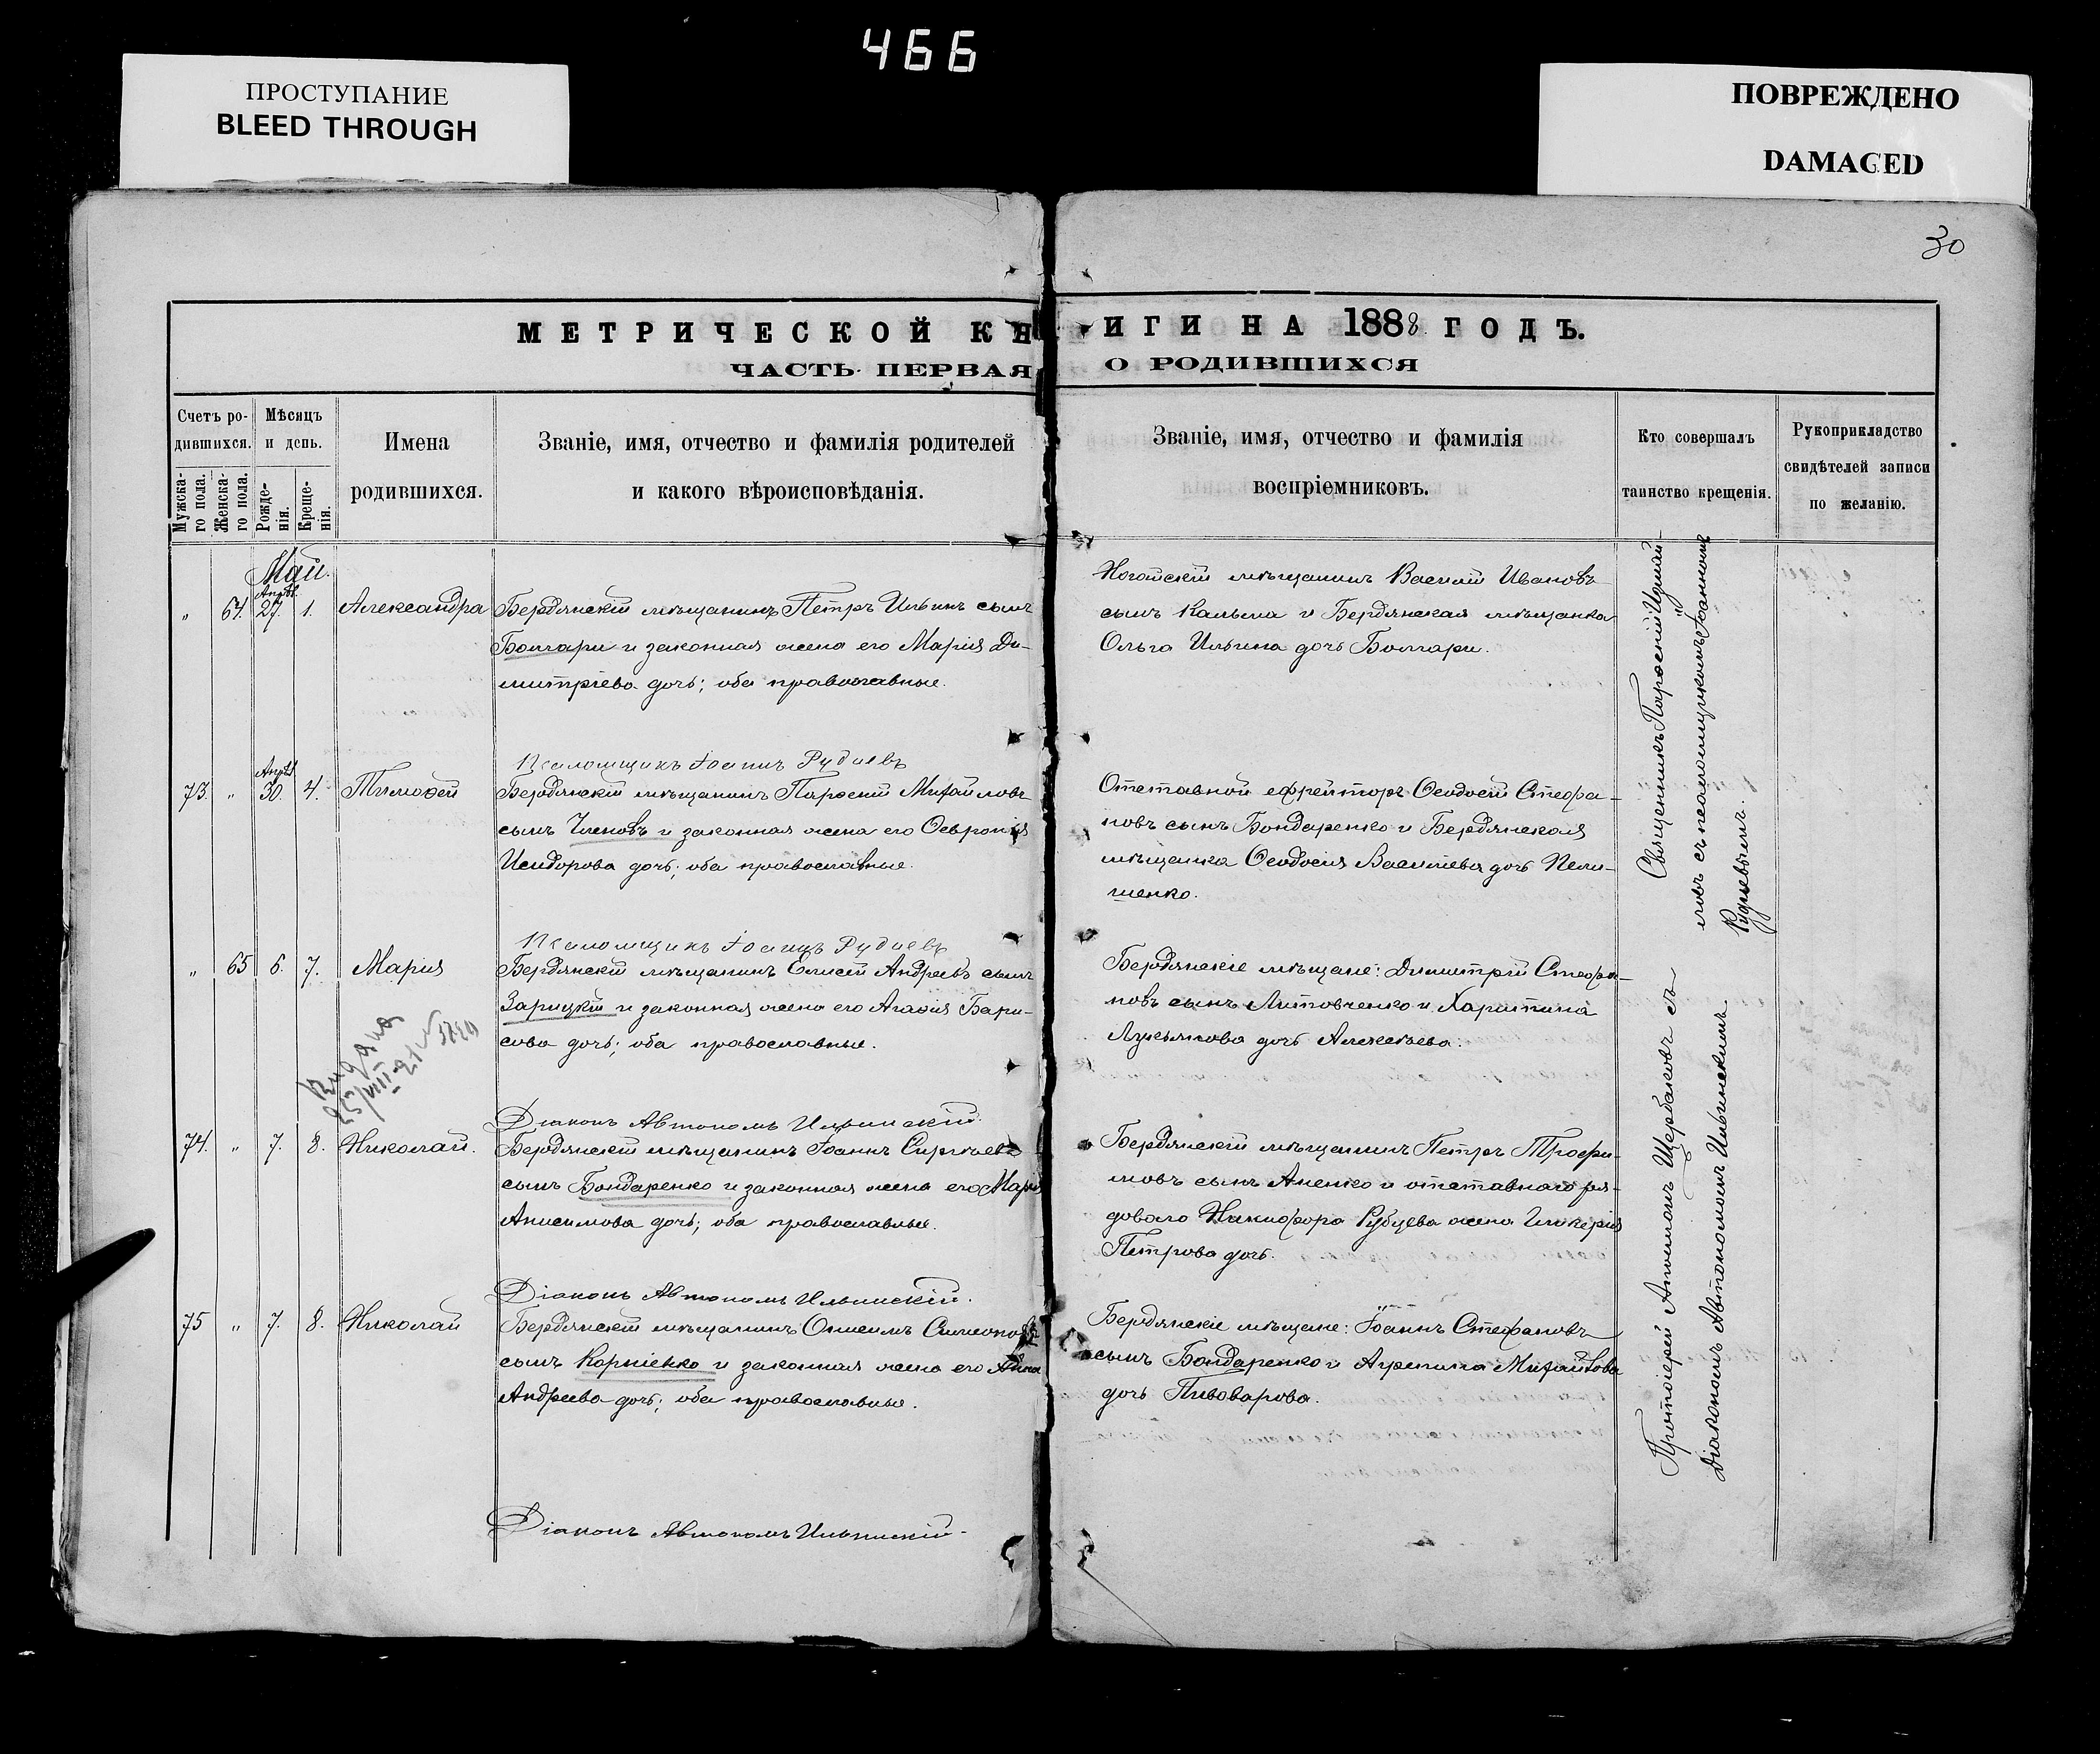 466
ПРОСТУПАНИЕ
BLEED THROUGH
ПОВРЕЖДЕНО
DAMAGED
30
МЕТРИЧЕСКОЙ КНИГИ НА 1888 ГОДЪ.
ЧАСТЬ ПЕРВАЯ О РОДИВШИХСЯ
Счетъ ро-
дившихся.
Мужска-
го пола.
Женска-
го пола.
Мѣсяцъ
и день.
Рожде-
нія.
Креще-
нія.
Имена
родившихся.
Званіе, имя, отчество и фамилія родителей
и какого вѣроисповѣданія.
Званіе, имя, отчество и фамилія
воспріемниковъ.
Кто совершалъ
таинство крещенія.
Рукоприкладство
свидѣтелей записи
по желанію.
Май.
Апрѣл.
„ 64. 27. 1. Александра
Бердянскій мѣщанинъ Петръ Ильинъ сынъ
Болгари и законная жена его Марія Ди-
митріева дочь; оба православные.
Ногайскій мѣщанинъ Василій Ивановъ
сынъ Кальма и Бердянская мѣщанка
Ольга Ильина дочь Болгари.
Псаломщикъ Іоаннъ Рудневъ
Апрѣл
73. „ 30. 4. Тимофей
Бердянскій мѣщанинъ Михайловъ
сынъ Членовъ и законная жена его Февронія
Исидорова дочь; оба православные.
Отставной ефрейторъ Ѳеодосій Стефа-
новъ сынъ Бондаренко и Бердянская
мѣщанка Ѳеодосія Васильева дочь Пели-
шенко.
Псаломщикъ Іоаннъ Рудневъ
„ 65 6. 7. Марія
Бердянскій мѣщанинъ Елисей Андреевъ сынъ
Зарицкій и законная жена его Агафія Бари-
сова дочь; оба православные.
Бердянскіе мѣщане: Димитрій Стефа-
новъ сынъ Литовченко и Харитина
Лукьянова дочь Алексѣева.
Видана
Діаконъ Автономъ Ильинскій.
74. „ 7. 8. Николай.
Бердянскій мѣщанинъ Іоаннъ Сергѣевъ
сынъ Бондаренко и законная жена его Марія
Анисимова дочь; оба православные.
Бердянскій мѣщанинъ Петръ Трофи-
мовъ сынъ Аненко и отставнаго ря-
доваго Никифора Рубцева жена Гликерія
Петрова дочь.
Діаконъ Автономъ Ильинскій.
75 „ 7. 8. Николай
Бердянскій мѣщанинъ Онисимъ Симеоновъ
сынъ Корніенко и законная жена его Анна
Андреева дочь; оба православные.
Бердянскіе мѣщане: Іоаннъ Стефановъ
сынъ Бондаренко и Агрипина Михайлова
дочь Пивоварова.
Діаконъ Автономъ Ильинскій.
Священникъ
съ псаломщикомъ Іоанномъ
Рудневымъ.
Протоіерей Щербаковъ съ
Діакономъ Автономомъ Ильинскимъ.